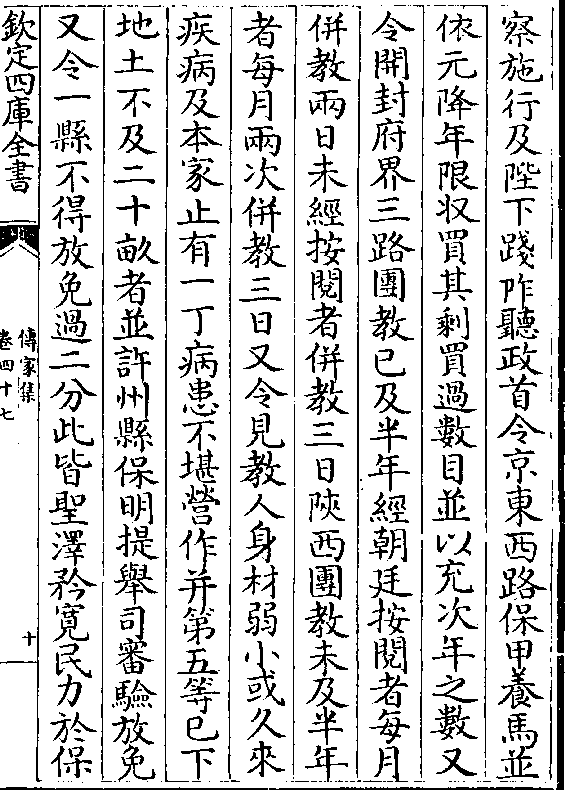 察施行及陛下踐阼聽政首令京東西路保甲養馬並
依元降年限収買其剰買過數目並以充次年之數又
令開封府界三路團教已及半年經朝廷按閱者每月
併教兩日未經按閱者併教三日陝西團教未及半年
者每月兩次併教三日又令見教人身材弱小或久來
疾病及本家止有一丁病患不堪營作并第五等已下
地土不及二十畝者並許州縣保明提舉司審驗放免
又令一縣不得放免過二分此皆聖澤矜寬民力於保
欽定四庫全書
傳家集
卷四十七
十